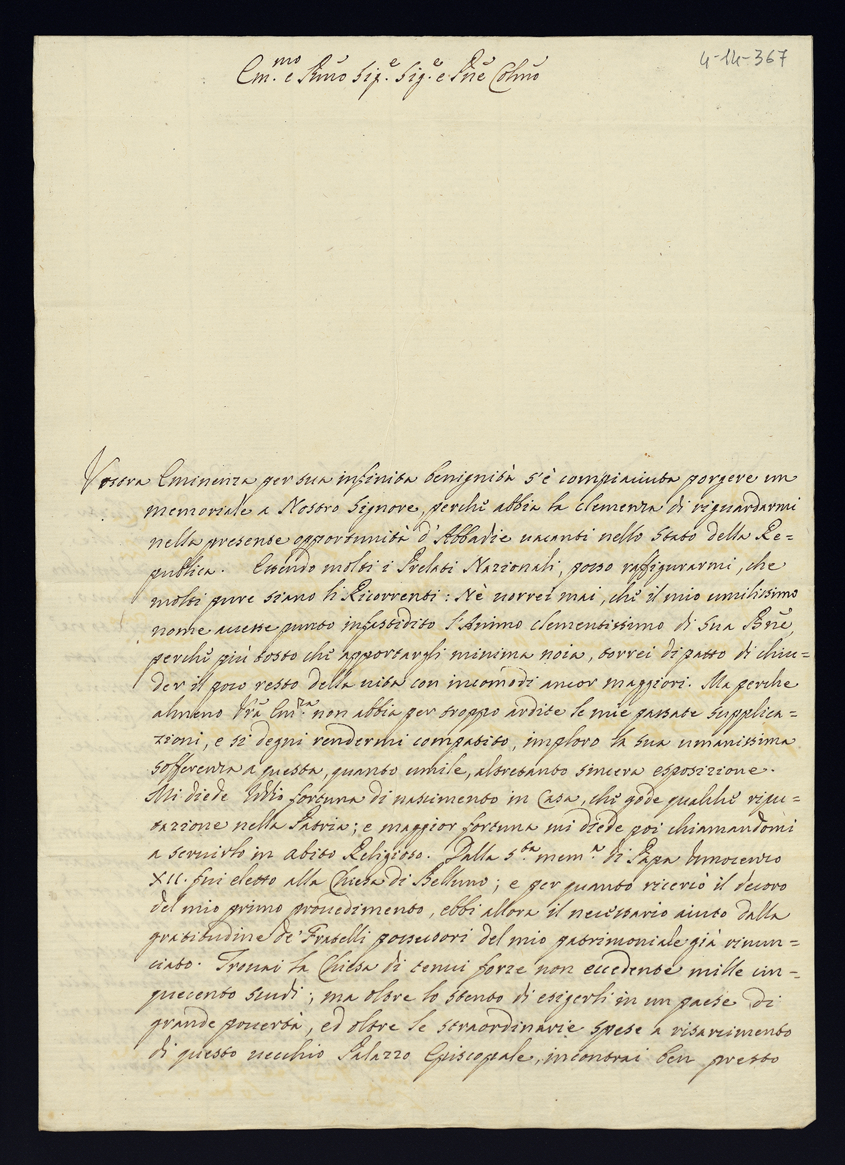 4-14-367
Em.mo e Rmo Sig.e Sig.e e Pne Colmo
Vostra Eminenza per sua infinita benignità s'è compiaciuta porgere un
memoriale a Nostro Signore, perchè abbia la clemenza di riguardarmi
nella presente opportunità d'Abbadie vacanti nello Stato della Re=
publica. Essendo molti i Prelati Nazionali, posso raffigurarmi, che
molti pure siano li Ricorrenti: Nè vorrei mai, chè il mio umilissimo
nome avesse punto infastidito l'Animo clementissimo di sua Bne,
perchè più tosto chè apportargli minima noia, torrei di patto di chiu=
der il poco resto della vita con incomodi ancor maggiori. Ma perche
almeno Vra Em.za non abbia per troppo ardite le mie passate supplica=
zioni, e si degni rendermi compatito, imploro la sua umanissima
sofferenza a questa, quanto umile, altretanto sincera esposizione.
Mi diede Iddio fortuna di nascimento in Casa, chè gode qualchè ripu=
tazione nella Patria; e maggior fortuna mi diede poi chiamandomi
a servirlo in abito Religioso. Dalla s.ta mem.a di Papa Innocenzo
XII. fui eletto alla Chiesa di Belluno; e per quanto ricercò il decoro
del mio primo provedimento, ebbi allora il necessario aiuto dalla
gratitudine de' Fratelli possessori del mio patrimoniale già rinun=
ciato. Trovai la Chiesa di tenui forze non eccedente mille cin=
quecento scudi; ma oltre lo stento di esigerli in un paese di
grande povertà, ed oltre le straordinarie spese a risarcimento
di questo vecchio Palazzo Episcopale, incontrai ben presto